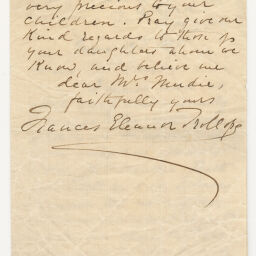 very precious to your
children. Pray give our
kind regards to those of
your daughters whom we
know, and believe me
dear Mrs Mudie,
faithfully yours
Frances Eleanor Trollope